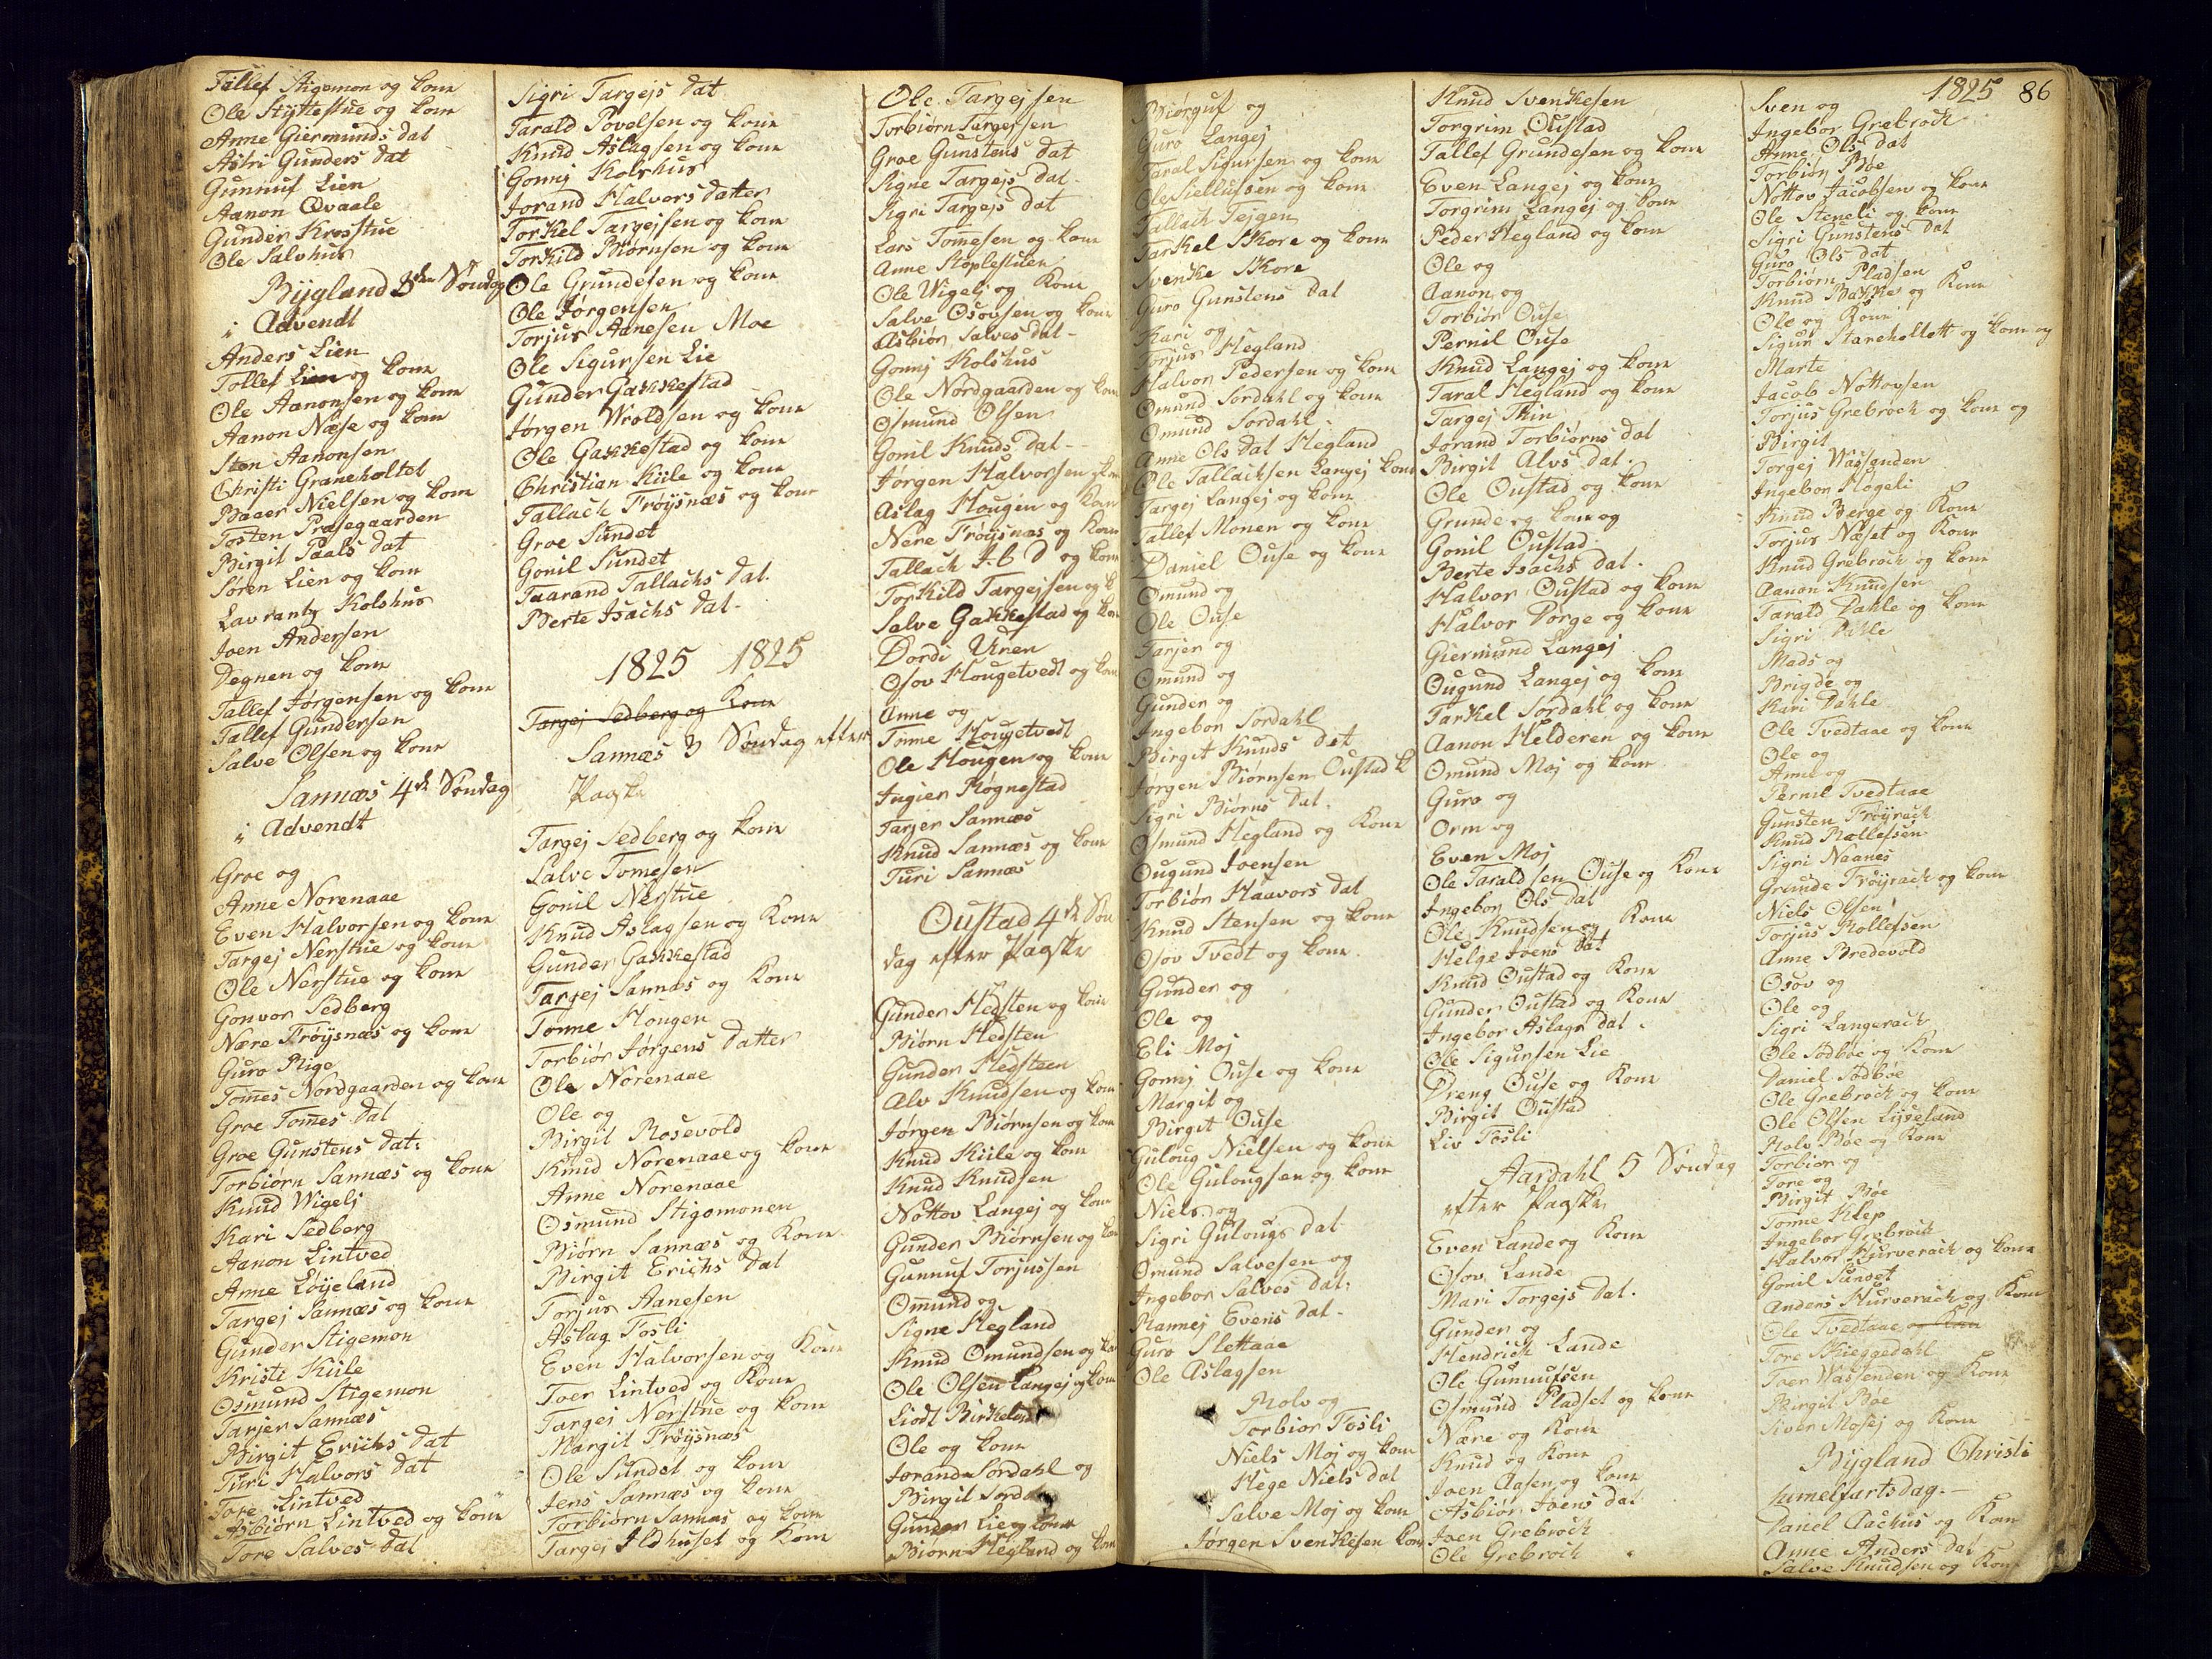 Tallef Stigemon og kone
Ole Nÿttestue og kone
Anne Giermunds dat
Astri Gunders dat
Gunnuf Lien
Aanon Qvaale
Gunder Krosstue
Ole Salvhus
Bÿgland 3de Søndag
i Advendt
Anders Lien
Tollef Lien og kone
Ole Aanonsen og kone
Aanon Næse og kone
Sten Aanonsen
Christi Graneholtet
Baaer Nielsen og kone
Tosten Præsegaarden
Birgit Paals dat
Søren Lien og kone
Lavrantz Kolshus
Joen Andersen
Degnen og kone
Tallef Jørgensen og kone
Tallef Gundersen
Salve Olsen og kone
Sannæs 4de Søndag
i Advendt
Groe og
Anne Norenaae
Even Halvorsen og kone
Targej Nerstue og kone
Ole Nerstue og kone
Gonvor Sedberg
Nære Frøÿsnæs og kone
Guro Rige
Tomes Nordgaarden og kone
Groe Tomes dat
Groe Gunstens dat.
Torbiørn Sannæs og kone
Knud Wigelj
Kari Sedberg
Aanon Lintved
Anne Løÿeland
Targej Sannæs og kone
Gunder Stigemon
Kristi Kiile
Osmund Stigemon
Tarjer Sannæs
Birgit Erichs dat
Turi Halvors dat
Tore Lintved
Asbiørn Lintved og kone
Tore Salves dat
Sigri Targejs dat
Tarald Povelsen og kone
Knud Aslagsen og kone
Gonnj Kolshus
Jorand Halvors datter
Torkel Targejsen og kone
Torkild Biørnsen og kone
Ole Grundesen og kone
Ole Jørgensen
Torjus Aanesen Moe
Ole Sigursen Lie
Gunder Gakkestad
Jørgen Wroldsen og kone
Ole Gakkestad og kone
Christian Kiile og kone
Tallach Frøÿsnæs og kone
Groe Sundet
Gonil Sundet
Taarand Tallachs dat.
Berte Isachs dat.
1825 1825
Targej Sedberg og Kone
Sannæs 3 Søndag efter
Paaske
Targej Sedberg og kone
Salve Tomesen
Gonil Nerstue
Knud Aslagsen og Kone
Gunder Gakkestad
Targej Sannæs og Kone
Tonne Hougen
Torbiør Jørgens datter
Ole Norenaae
Ole og
Birgit Rosevold
Knud Norenaae og kone
Anne Norenaae
Osmund Stigemonen
Biørn Sannæs og Kone
Birgit Erichs dat
Torjus Aanesen
Aslag Fosli
Even Halvorsen og Kone
Toer Lintved og Kone
Targej Nerstue og kone
Margit Frøÿsnæs
Ole Sundet og kone
Jens Sannæs og kone
Torbiørn Sannæs og kone
Targej Ildhuset og Kone
Ole Targejsen
Torbiørn Targejsen
Groe Gunstens dat
Signe Targejs dat.
Sigri Targejs dat
Lars Tomesen og kone
Anne Støplestuen
Ole Wigelj og Kone
Salve Osovsen og kone
Asbiør Salves dat
Gonnj Kolshus
Ole Nordgaarden og kone
Osmund Olsen
Gonil Knuds dat
Jørgen Halvorsen kone
Aslag Hougen og Kone
Nere Frøÿsnæs og Kone
Tallach I. b d og kone
Torkild Targejsen og k
Salve Gakkestad og kone
Dordi Uren
Osov Hougetvedt og kone
Anne og
Tonne Hougetvedt
Ole Hougen og kone
Ingier Røgnestad
Tarjer Sannæs
Knud Sannæs og kone
Turi Sannæs
Oustad 4de Søn
dag efter Paaske
Gunder Hedsten og kone
Biørn Hedsten
Gunder Hedsteen
Alv Knudsen og kone
Jørgen Biørnsen og kone
Knud Kiile og kone
Knud Knudsen
Nottov Langej og kone
Gunder Biørnsen og kone
Gunnuf Torjussen
Omund og
Signe Hegland
Knud Omundsen og ko
Ole Olsen Langej og kone
Liodt Birkeland
Ole og kone
Jorand Sordahl og
Birgit Sordahl
Gunder Lie og kone
Biørn Hegland og kone
Biørguf og
Guro Langej
Taral Sigursen og kone
Ole Siellufsen og kone
Tallach Tejgen
Tarkel Skore og kone
Svenke Skore
Guro Gunstens dat
Kari og
Torjus Hegland
Halvor Pedersen og kone
Omund Sordahl og kone
Omund Sordahl
Anne Ols dat Hegland
Ole Tallachsen Langej kone
Targej Langej og kone
Tallef Monen og kone
Daniel Ouse og kone
Omund og
Ole Ouse
Tarjer og
Omund og
Gunder og
Ingebor Sordahl
Birgit Knuds dat
Jørgen Biørnsen Oustad k
Sigri Biørns dat.
Osmund Hegland og Kone
Ougund Joensen
Torbiør Haavors dat
Knud Stensen og kone
Osov Tvedt og kone.
Gunder og
Ole og
Eli Moj
Gonnj Ouse og kone
Margit og
Birgit Ouse
Guloug Nielsen og kone
Ole Gulougsen og kone
Niels og
Sigri Gulougs dat
Omund Salvesen og
Ingebor Salves dat.
Rannej Evens dat.
Guro Slettaae
Ole Aslagsen
Rolv og
Torbior Fosli
Niels Moj og kone
Hege Niels dat
Salve Moj og kone
Jørgen Svenkesen kone
Knud Svenkesen
Torgrim Oustad
Tallef Grundesen og kone
Even Langej og kone
Torgrim Langej og kone
Peder Hegland og kone
Ole og
Aanon og
Torbiør Ouse
Pernil Ouse
Knud Langej og kone
Taral Hegland og kone
Targej Thin
Jorand Torbiørns dat
Birgit Alvs dat.
Ole Oustad og kone
Grunde og kone og
Gonil Oustad
Berte Isachs dat.
Halvor Oustad og kone
Halvor Porge og kone
Giermund Langej
Ougund Langej og kone
Tarkel Sordahl og kone
Aanon Helderen og kone
Omund Moj og kone
Guro og
Orm og
Even Moj
Ole Taraldsen Ouse og Kone
Ingebor Ols dat
Ole Knudsen og Kone
Helge Joens dat
Knud Oustad og Kone
Gunder Oustad og Kone
Ingebor Aslags dat.
Ole Sigursen Lie
Dreng Ouse og Kone
Birgit Oustad
Liv Fosli
Aardahl 5 Søndag
efter Paaske
Even Lande og Kone
Osov Lande
Mari Torgejs dat.
Gunder og
Hendrich Lande
Ole Gunnufsen
Osmund Pladset og kone
Nære og Kone
Knud og Kone
Joen Aasen og kone
Asbiør Joens dat
Joen Grebroch
Ole Grebroch
1825 86
Sven og
Ingebor Grebroch
Anne Ols dat
Torbiør Bøe
Nottov Jacobsen og kone
Ole Steneli og kone
Sigri Gunstens dat
Guro Ols dat
Torbiørn Pladsen
Knud Bakke og Kone
Ole og Kone
Sigur Stareholtet og kone og
Marte
Jacob Nottovsen
Torjus Grebroch og kone og
Birgit
Torgej Wassenden
Ingebor Hogeli
Knud Berge og Kone
Torjus Næset og Kone
Knud Grebroch og kone
Aanon Knudsen
Tarald Dahle og kone
Sigri Dahle
Mads og
Brigde og
Kari Dahle
Ole Tvedtaae og kone
Ole og
Anne og
Pernil Tvedtaae
Gunsten Frøÿrach
Knud Rallefsen
Sigri Naanes
Grunde Frøÿrach og kone
Niels Olsen
Torjus Rollefsen
Anne Bredevold
Osov og
Ole og
Sigri Langerach
Ole Sodbøe og Kone
Daniel Sodbøe
Ole Grebroch og kone
Ole Olsen Liseland
Rolv Bøe og Kone
Torbior og
Tore og
Birgit Bøe
Tonne Klep
Ingebor Grebroch
Halvor Hurverach og kone
Gonil Sundet
Anders Hurverach og Kone
Ole Tvedtaae og kone
Tore Skieggedahl
Toer Wassenden og Kone
Birgit Bøe
Siver Mosej og Kone
Bÿgland Christi
himelfartsdag.
Daniel Aachus og Kone
Anne Anders dat
Salve Knudsen og Kone